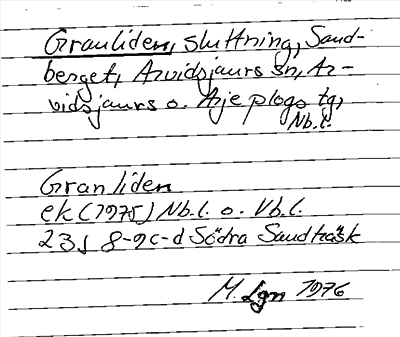 Granliden, sluttning, Sand-
berget, Arvidsjaurs sn, Ar-
vidsjaurs o. Arjeplogs tg,
Nb.l.
Granliden
ek (1975) Nb.l. o. Vb.l.
23J 8-9c-d Södra Sandträsk
M. Lgn 1976